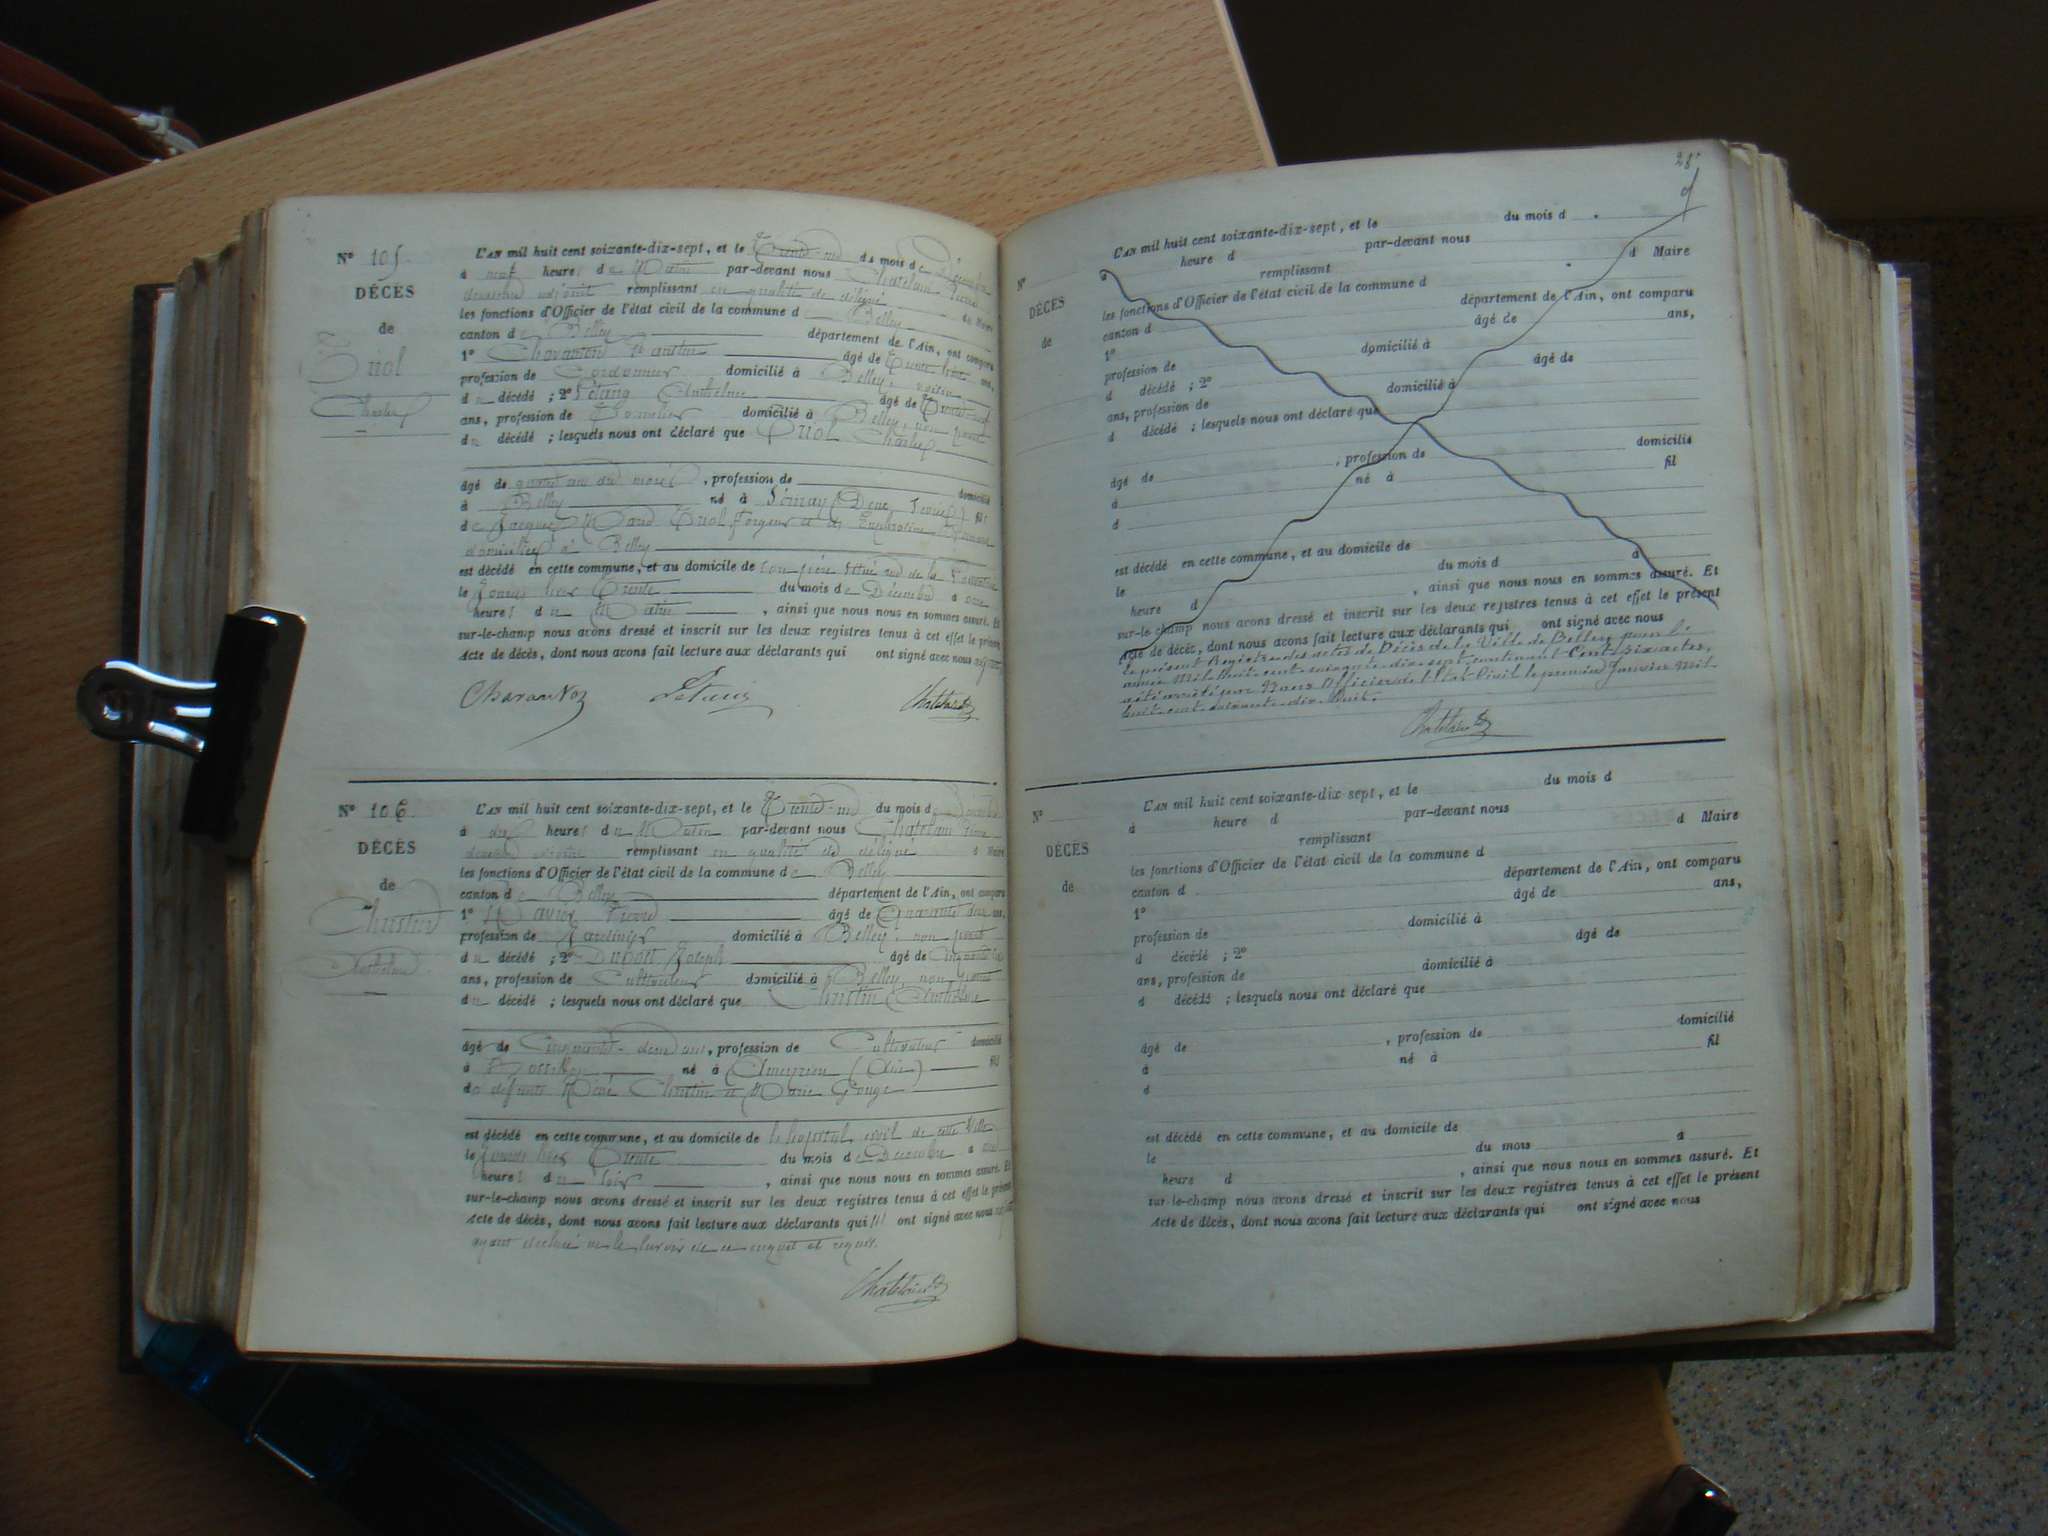 N° 105
DÉCÈS
de
Charles
L'AN mil huit cent soixante-dix-sept, et le Trente-un du mois de Décembre
à neuf heures du Matin par-devant nous Chatelain Pierre
deuxième adjoint remplissant en qualité de délégué du Maire
les fonctions d'Officier de l'état civil de la commune d Belley
canton de Belley département de l'Ain, ont comparu
1° âgé de Trente huit ans,
profession de Cordonnier domicilié à Belley, voisin
du décédé ; 2° Anthelme âgé de
ans, profession de domicilié à Belley, non parent
du décédé ; lesquels nous ont déclaré que Charles
âgé de quatre ans dix mois , profession de domicilié
à Belley né à (Deux Sèvres) fils
de Jacques forgeur et de
domiciliés à Belley
est décédé en cette commune, et au domicile de son père situé rue de la
le jour hier Trente du mois de Décembre à onze
heures du Matin , ainsi que nous nous en sommes assuré. Et
sur-le-champ nous avons dressé et inscrit sur les deux registres tenus à cet effet le présent
Acte de décès, dont nous avons fait lecture aux déclarants qui ont signé avec nous
Chatelain
N° 106
DÉCÈS
de
Christin
Anthelme
L'AN mil huit cent soixante-dix-sept, et le Trente-un du mois d Décembre
à dix heures du Matin par-devant nous Chatelain Pierre
deuxième adjoint remplissant en qualité de délégué d Maire
les fonctions d'Officier de l'état civil de la commune de Belley
canton de Belley département de l'Ain, ont comparu
1° Pierre âgé de Quarante deux ans,
profession de Jardinier domicilié à Belley, non parent
du décédé ; 2° Joseph âgé de
ans, profession de Cultivateur domicilié à Belley, non parent
du décédé ; lesquels nous ont déclaré que Christin Anthelme
âgé de Cinquante-deux ans, profession de Cultivateur domicilié
à né à Ameyzieu (Ain) fils
de défunts Christin et Marie
est décédé en cette commune, et au domicile de le hopital civil de cette Ville
le jour hier Trente du mois de Décembre à
heures du soir , ainsi que nous nous en sommes assuré. Et
sur-le-champ nous avons dressé et inscrit sur les deux registres tenus à cet effet le présent
Acte de décès, dont nous avons fait lecture aux déclarants qui ont signé avec nous
ayant déclaré ne le savoir de ce enquis et requis.
Chatelain
28
N°
DÉCÈS
de
L'AN mil huit cent soixante-dix-sept, et le du mois d
à heure d par-devant nous
remplissant d Maire
les fonctions d'Officier de l'état civil de la commune d
canton d département de l'Ain, ont comparu
1° âgé de ans,
profession de domicilié à
d décédé ; 2° âgé de
ans, profession de domicilié à
d décédé ; lesquels nous ont déclaré que
âgé de , profession de domicilié
à né à fil
d
est décédé en cette commune, et au domicile de
le du mois d à
heure d , ainsi que nous nous en sommes assuré. Et
sur-le-champ nous avons dressé et inscrit sur les deux registres tenus à cet effet le présent
Acte de décès, dont nous avons fait lecture aux déclarants qui ont signé avec nous
Le présent Registre des actes de Décès de la Ville de Belley pour le
année Mil huit cent soixante-dix-sept contenant Cent six actes,
a été arrêté par Nous Officier de l'Etat Civil le premier Janvier Mil
huit cent soixante-dix-huit.
Chatelain
N°
DÉCÈS
de
L'AN mil huit cent soixante-dix sept, et le du mois d
à heure d par-devant nous
remplissant d Maire
les fonctions d'Officier de l'état civil de la commune d
canton d département de l'Ain, ont comparu
1° âgé de ans,
profession de domicilié à
d décédé ; 2° âgé de
ans, profession de domicilié à
d décédé ; lesquels nous ont déclaré que
âgé de , profession de domicilié
à né à fil
d
est décédé en cette commune, et au domicile de
le du mois à
heure d , ainsi que nous nous en sommes assuré. Et
sur-le-champ nous avons dressé et inscrit sur les deux registres tenus à cet effet le présent
Acte de décès, dont nous avons fait lecture aux déclarants qui ont signé avec nous